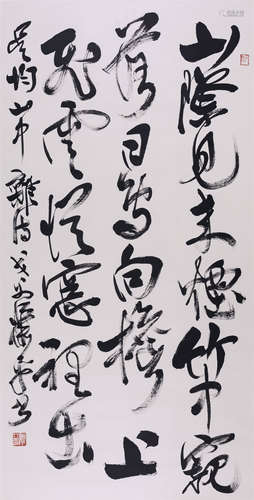 山際見来煙竹中窺
落日鳥向檐上
飛雲從窗裡出
吳均山中雜詩書